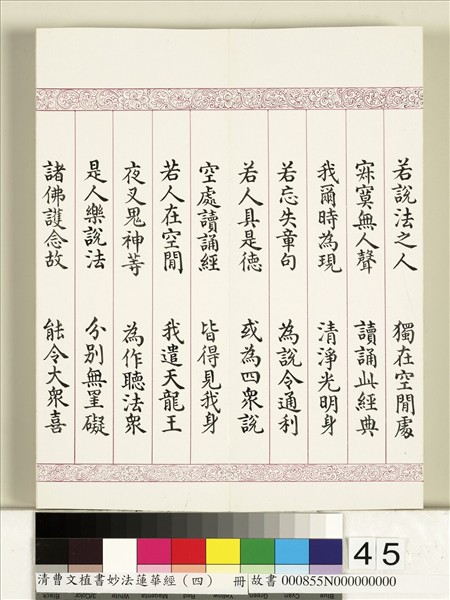 若說法之人　獨在空閒處
寂寞無人聲　讀誦此經典
我爾時為現　清淨光明身
若忘失章句　為說令通利
若人具是德　或為四衆說
空處讀誦經　皆得見我身
若人在空閒　我遣天龍王
夜叉鬼神等　為作聽法衆
是人樂說法　分別無罣礙
諸佛護念故　能令大衆喜
45
清曹文植書妙法蓮華經（四）　冊 故書 000855N000000000